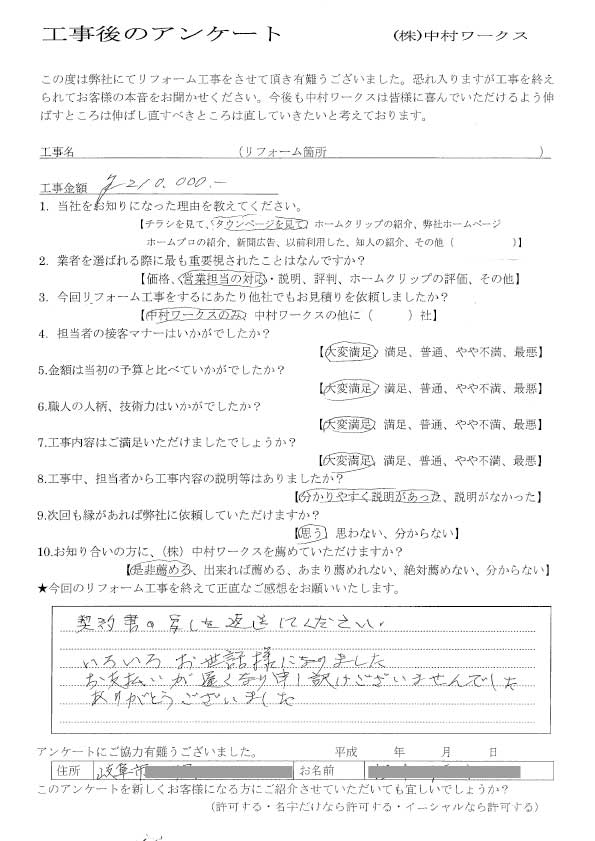 工事後のアンケート (株)中村ワークス
この度は弊社にてリフォーム工事をさせて頂き有難うございました。恐れ入りますが工事を終え
られてお客様の本音をお聞かせください。今後も中村ワークスは皆様に喜んでいただけるよう伸
ばすところは伸ばし直すべきところは直していきたいと考えております。
工事名 (リフォーム箇所 )
工事金額 ¥210.000.-
1. 当社をお知りになった理由を教えてください。
【チラシを見て、タウンページを見て、ホームクリップの紹介、弊社ホームページ
ホームプロの紹介、新聞広告、以前利用した、知人の紹介、その他( )】
2. 業者を選ばれる際に最も重要視されたことはなんですか?
【価格、営業担当の対応・説明、評判、ホームクリップの評価、その他】
3. 今回リフォーム工事をするにあたり他社でもお見積りを依頼しましたか?
【中村ワークスのみ、中村ワークスの他に( )社】
4. 担当者の接客マナーはいかがでしたか?
【大変満足、満足、普通、やや不満、最悪】
5.金額は当初の予算と比べていかがでしたか?
【大変満足、満足、普通、やや不満、最悪】
6.職人の人柄、技術力はいかがでしたか?
【大変満足、満足、普通、やや不満、最悪】
7.工事内容はご満足いただけましたでしょうか?
【大変満足、満足、普通、やや不満、最悪】
8.工事中、担当者から工事内容の説明等はありましたか?
【分かりやすく説明があった、説明がなかった】
9.次回も縁があれば弊社に依頼していただけますか?
【思う、思わない、分からない】
10.お知り合いの方に、(株)中村ワークスを薦めていただけますか?
【是非薦める、出来れば薦める、あまり薦めれない、絶対薦めない、分からない】
★今回のリフォーム工事を終えて正直なご感想をお願いいたします。
契約書の写しを返送してください.
いろいろお世話様になりました
お支払いが遅くなり申し訳けございませんでした
ありがとうございました
アンケートにご協力有難うございました。 平成 年 月 日
住所 岐阜市 お名前
このアンケートを新しくお客様になる方にご紹介させていただいても宜しいでしょうか?
(許可する・名字だけなら許可する・イニシャルなら許可する)